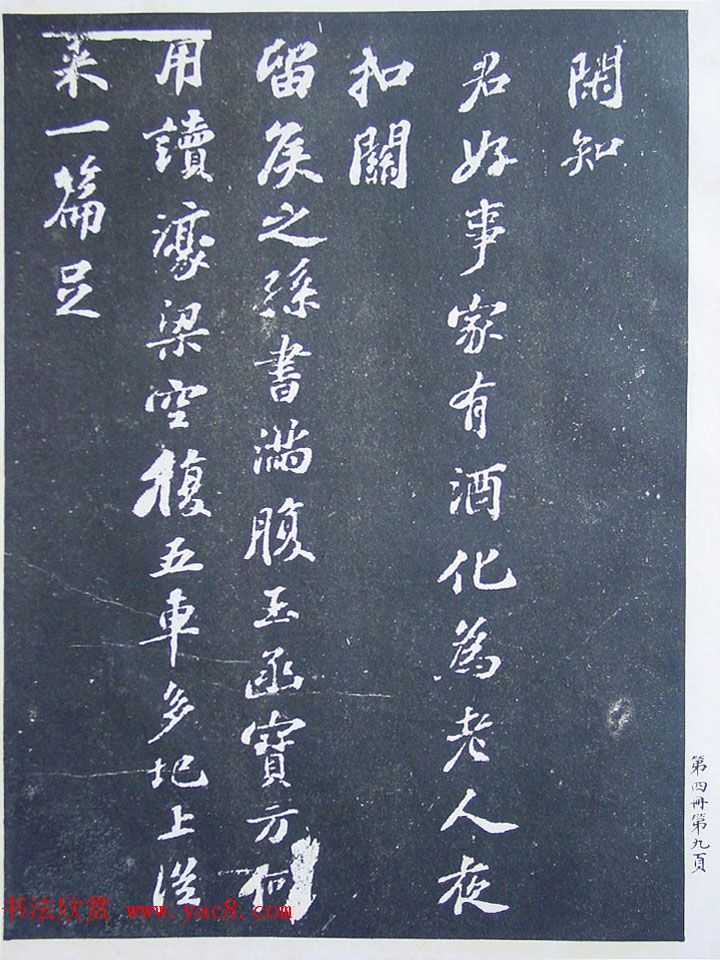 閑知
君好事家有酒化為老人夜
扣關
留侯之孫書滿腹玉函寶方何
用讀濠梁空復五車多圯上從
來一篇足
第四冊第九頁
书法欣赏 www.yac8.com